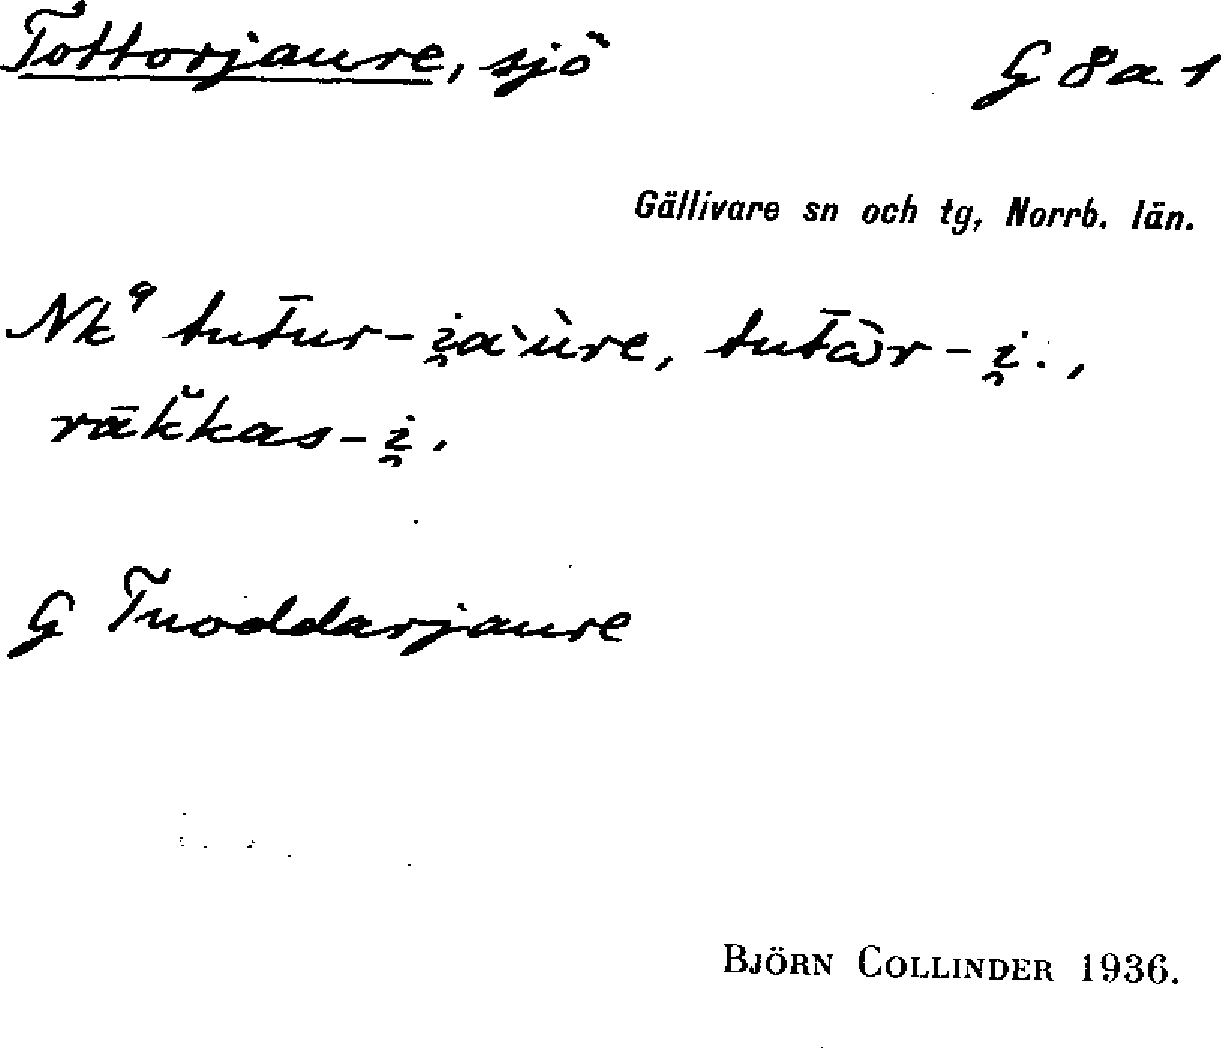 Tottorjaure, sjö G 8 a 1
Gällivare sn och tg, Norrb. län.
Nk⁹ tut̄ur-i̯a`ùre, tut̄òr-i̯.,
rāk̆kas-i̯.
G Tuoddarjaure
BJÖRN COLLINDER 1936.